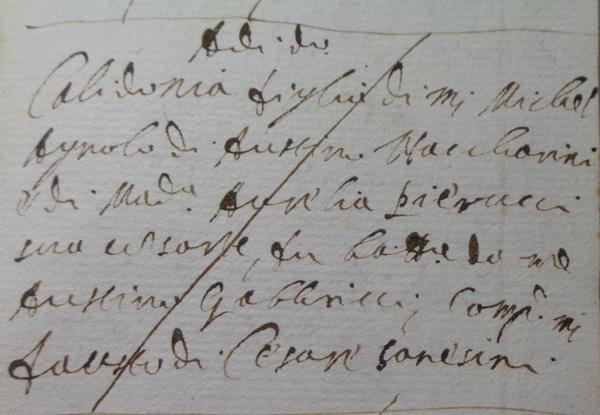 Adi do
Calidonia figlia di mr Michel
Agnolo di Austino Vaccharini
e di Mada Aurelia Pierucci
sua consorte, fu batta da me
Austino Gabbrielli; Compe mr
di Cesare